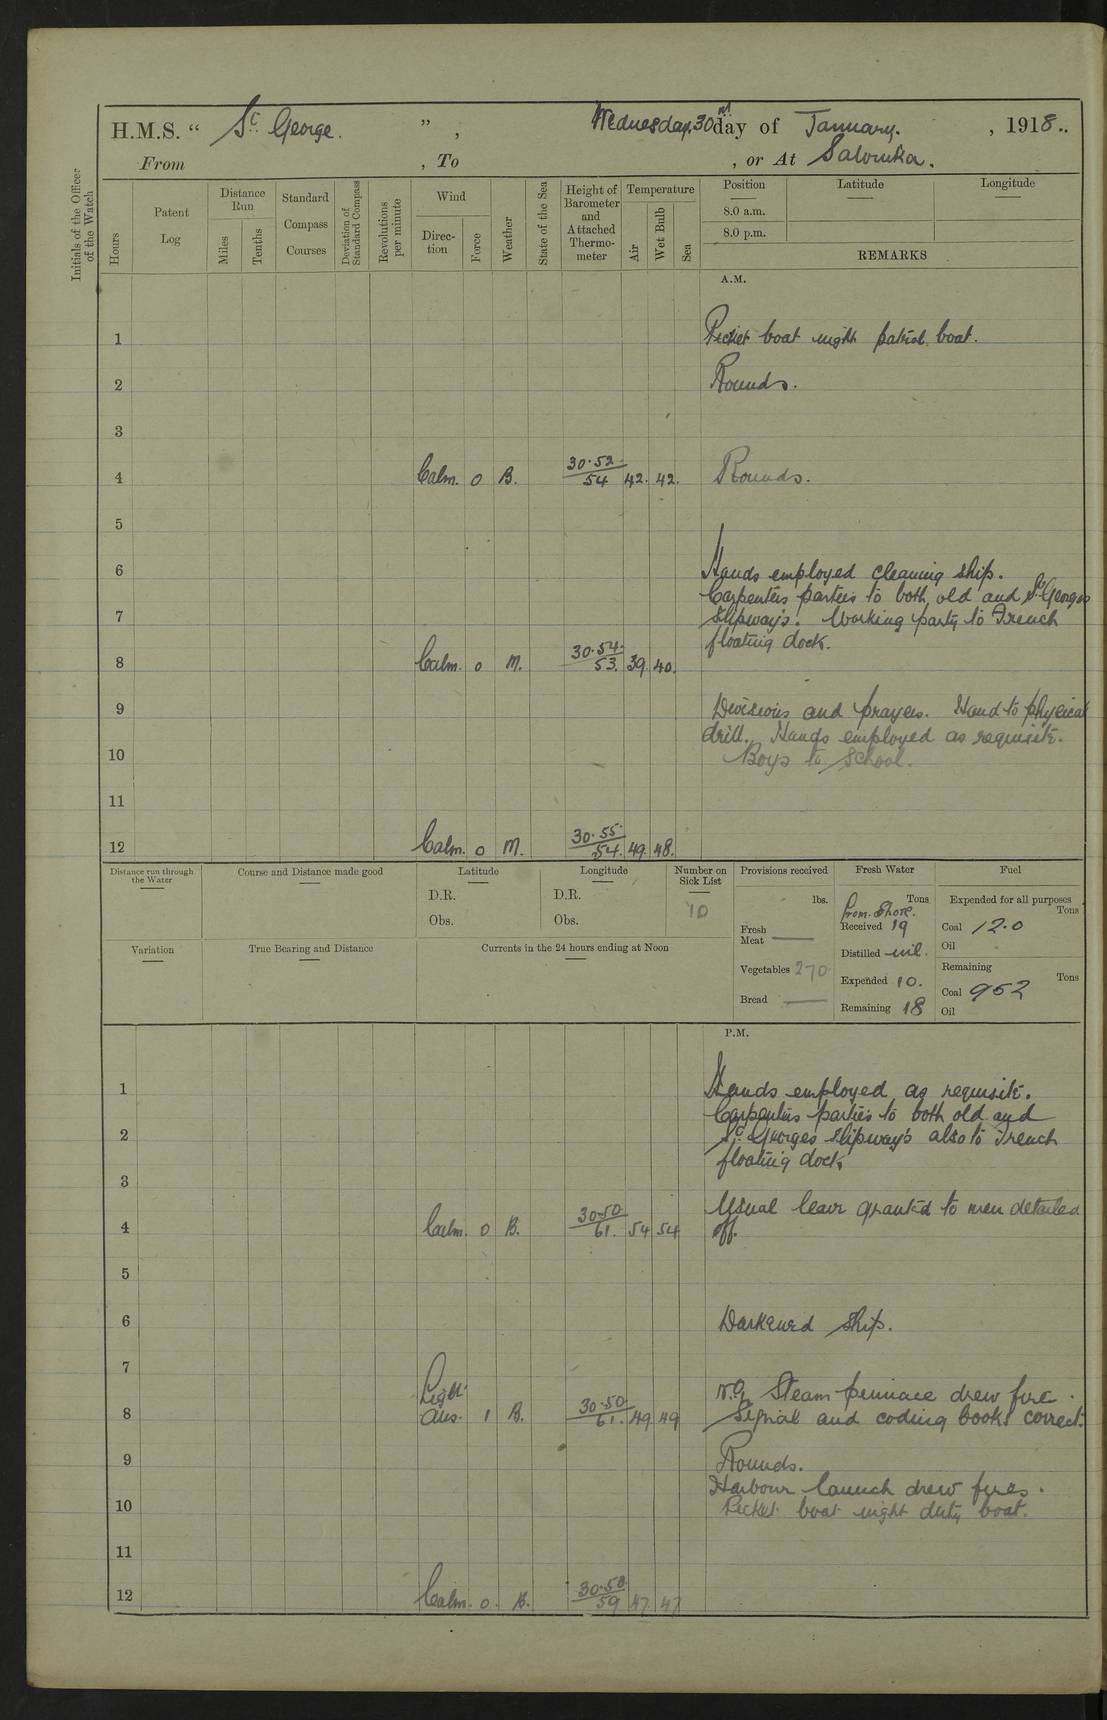 H.M.S. " St George. " , Wednesday 30th day of January. , 1918..
From , To , or At Salonika.
Initials of the Officer of the Watch
Hours
Patent Log
Distance Run
Miles
Tenths
Standard Compass Courses
Deviation of Standard Compass
Revolutions per minute
Wind
Direction
Force
Weather
State of the Sea
Height of Barometer and Attached Thermometer
Temperature
Air
Wet Bulb
Sea
Position
8.0 a.m.
8.0 p.m.
Latitude
Longitude
REMARKS
A.M.
1 Picket boat night patrol boat.
2 Rounds.
3
4 Calm. 0 B. 30.52 54 42. 42. Rounds.
5
6 Hands employed cleaning ship.
Carpenters parties to both old and St Georges
7 Slipway's. Working party to French
floating dock.
8 Calm. 0 M. 30.54 53. 39. 40.
9 Divisions and prayers. Hand to physical
drill. Hands employed as requisite.
10 Boys to School.
11
12 Calm. 0 M. 30.55 54. 49. 48.
Distance run through the Water
Course and Distance made good
Latitude
D.R.
Obs.
Longitude
D.R.
Obs.
Number on Sick List
10
Provisions received
lbs.
Fresh Meat
Vegetables 270
Bread
Fresh Water
Tons
From Shore.
Received 19
Distilled nil.
Expended 10.
Remaining 18
Fuel
Expended for all purposes
Tons
Coal 12.0
Oil
Remaining
Tons
Coal 952
Oil
Variation
True Bearing and Distance
Currents in the 24 hours ending at Noon
P.M.
1 Hands employed as requisite.
Carpenters parties to both old and
2 St Georges slipway's also to French
floating dock
3
Usual leave granted to men detailed
4 Calm. 0 B. 30.50 61. 54 54 off.
5
6 Darkened ship.
7
Light
Steam pinnace drew fire.
8 airs. 1 B. 30.50 61. 49 49 Signal and coding books correct.
9 Rounds.
Harbour launch drew fires.
10 Picket boat night duty boat.
11
12 Calm. 0. B. 30.50 59 47 47